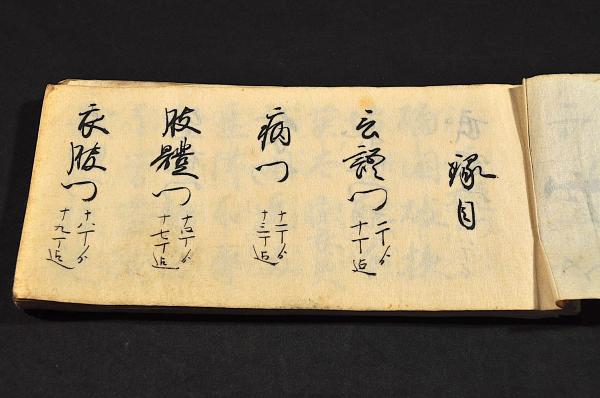 目
言語門 二丁ゟ
十一丁迄
病門 十二丁ゟ
十三丁迄
肢體門 十四丁ゟ
十七丁迄
衣服門 十八丁ゟ
十九丁迄